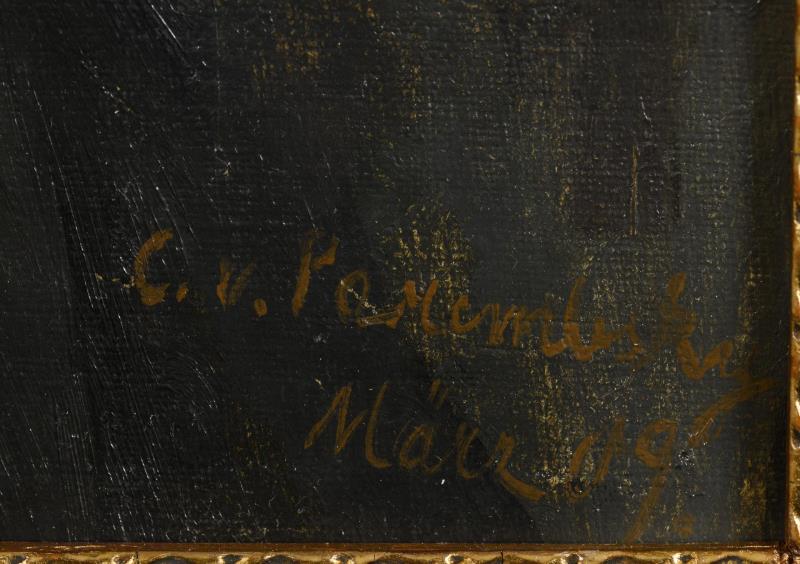 C. v. Porembsky
März 09.